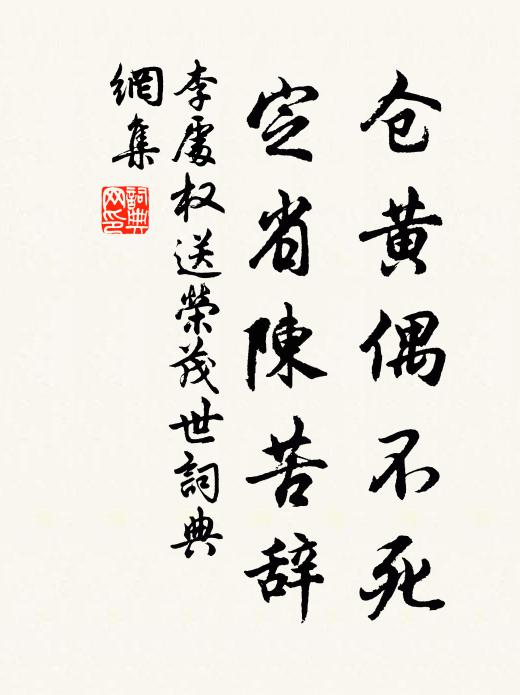 仓黄偶不死
定省陳苦辞
李處权送榮茂世詞典
網集
詞典网印